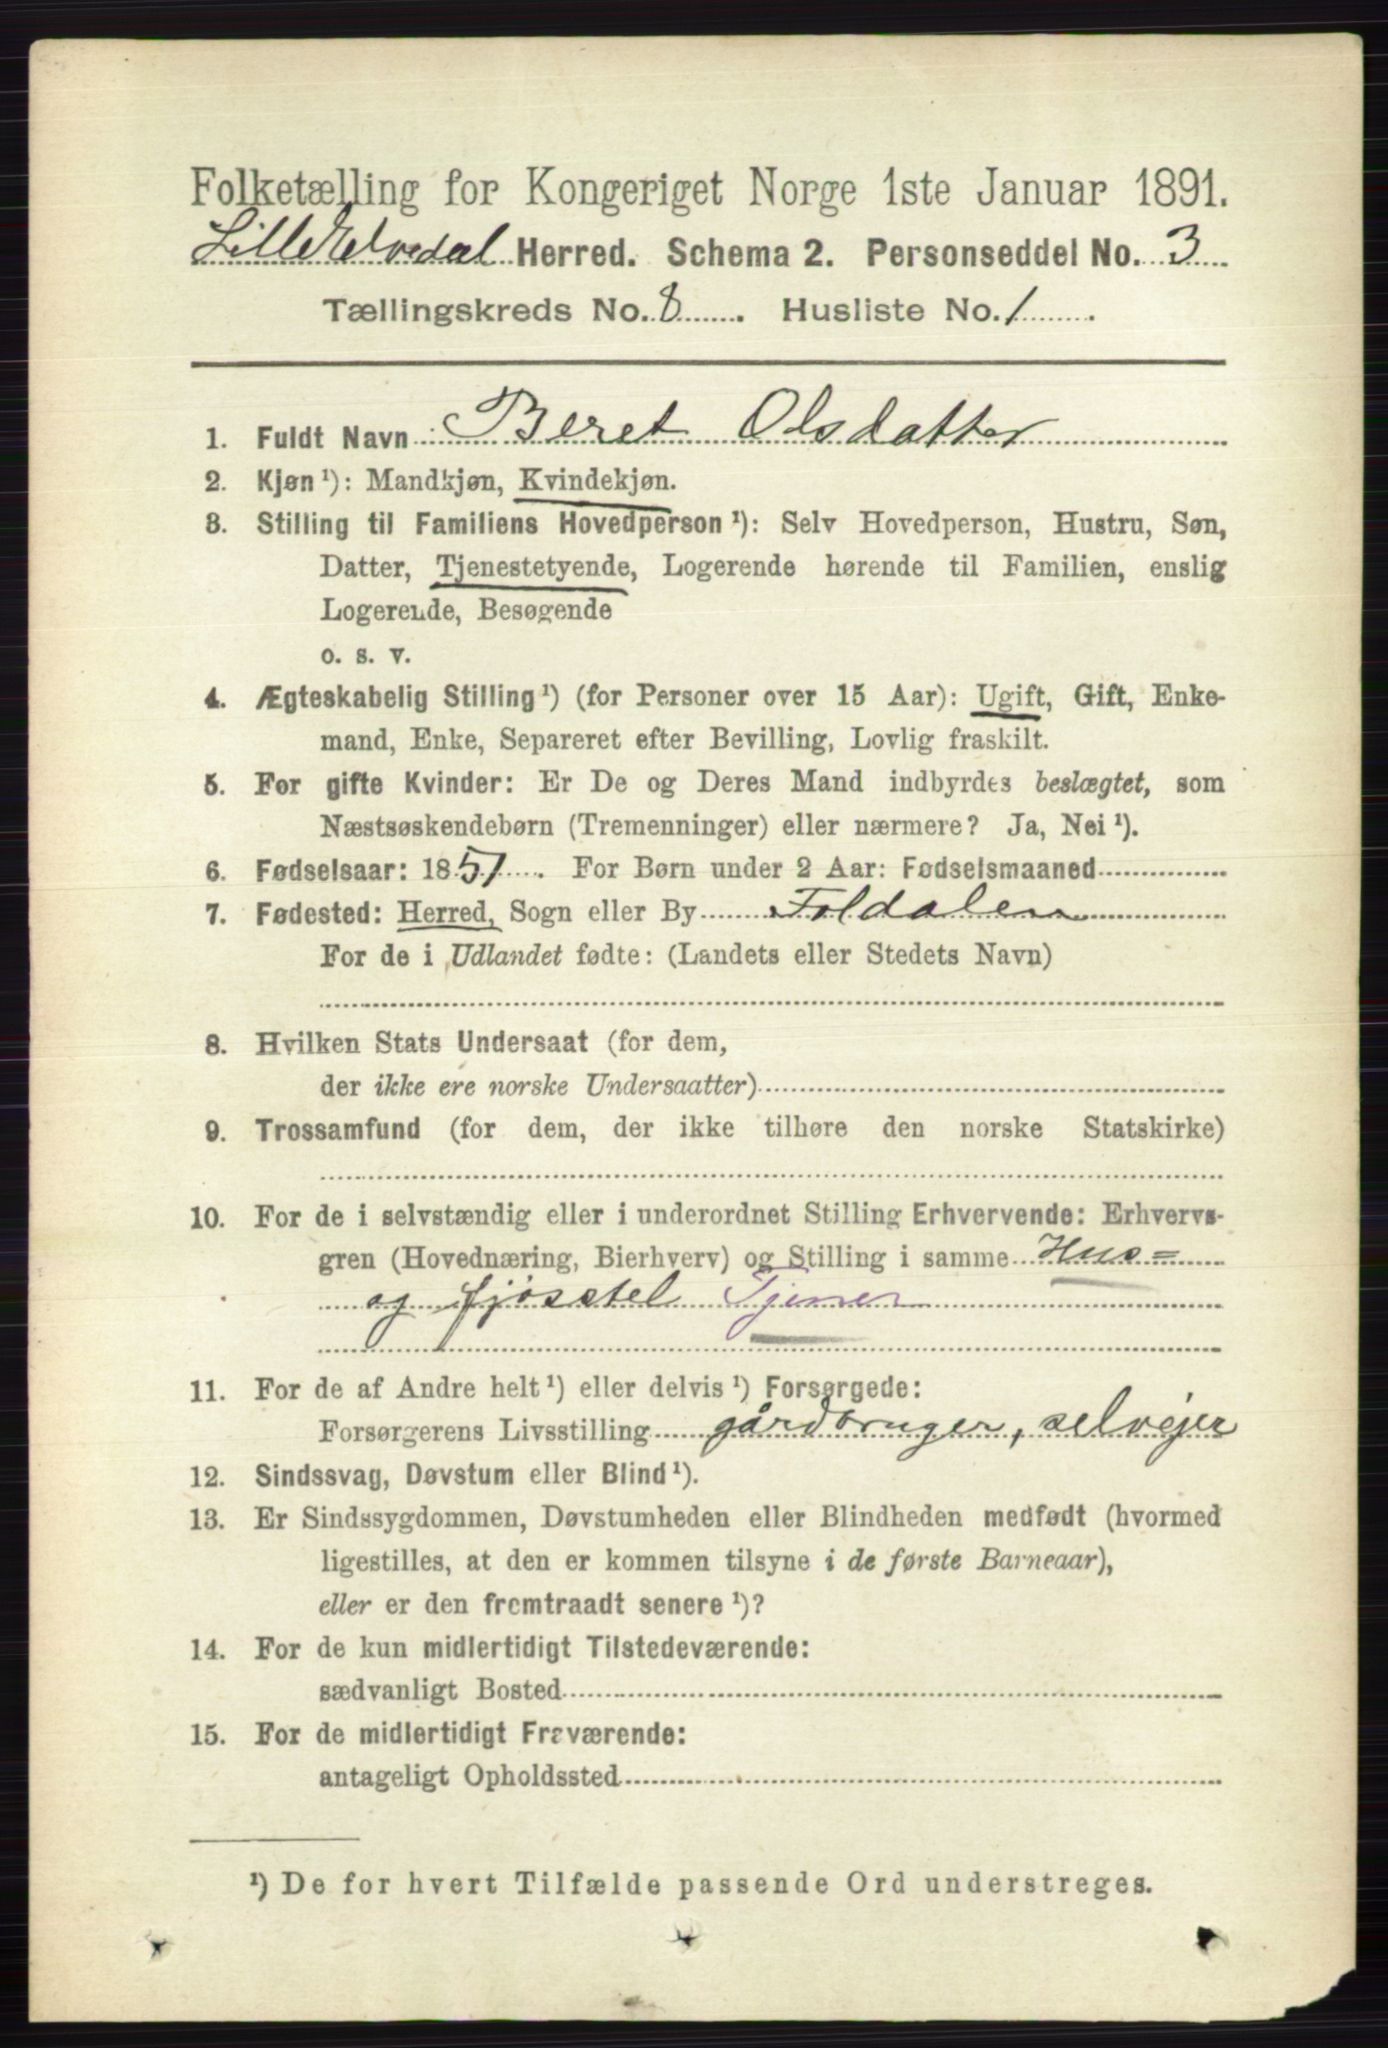 Folketælling for Kongeriget Norge 1ste Januar 1891.
Lille Elvedal Herred. Schema 2. Personseddel No. 3
Tællingskreds No. 8. Husliste No. 1.
1. Fuldt Navn Beret Olsdatter
2. Kjøn ¹): Mandkjøn, Kvindekjøn.
3. Stilling til Familiens Hovedperson ¹): Selv Hovedperson, Hustru, Søn,
Datter, Tjenestetyende, Logerende hørende til Familien, enslig
Logerende, Besøgende
o. s. v.
4. Ægteskabelig Stilling ¹) (for Personer over 15 Aar): Ugift, Gift, Enke-
mand, Enke, Separeret efter Bevilling, Lovlig fraskilt.
5. For gifte Kvinder: Er De og Deres Mand indbyrdes beslægtet, som
Næstsøskendebørn (Tremenninger) eller nærmere? Ja, Nei ¹).
6. Fødselsaar: 1851. For Børn under 2 Aar: Fødselsmaaned
7. Fødested: Herred, Sogn eller By Foldalen
For de i Udlandet fødte: (Landets eller Stedets Navn)
8. Hvilken Stats Undersaat (for dem,
der ikke ere norske Undersaatter)
9. Trossamfund (for dem, der ikke tilhøre den norske Statskirke)
10. For de i selvstændig eller i underordnet Stilling Erhvervende: Erhvervs-
gren (Hovednæring, Bierhverv) og Stilling i samme Hus=
og fjøsstel Tjener
11. For de af Andre helt ¹) eller delvis ¹) Forsørgede:
Forsørgerens Livsstilling gårdbruger, selvejer
12. Sindssvag, Døvstum eller Blind ¹).
13. Er Sindssygdommen, Døvstumheden eller Blindheden medfødt (hvormed
ligestilles, at den er kommen tilsyne i de første Barneaar),
eller er den fremtraadt senere ¹)?
14. For de kun midlertidigt Tilstedeværende:
sædvanligt Bosted
15. For de midlertidigt Fraværende:
antageligt Opholdssted
¹) De for hvert Tilfælde passende Ord understreges.